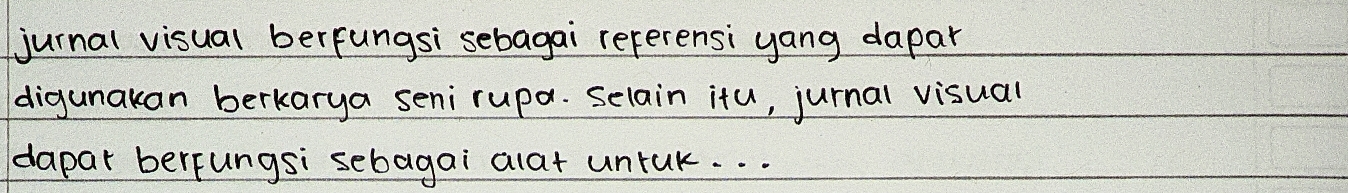 jurnal visual berfungsi sebagai referensi yang dapat
digunakan berkarya seni rupa. Selain itu, jurnal visual
dapat berfungsi sebagai alat untuk...